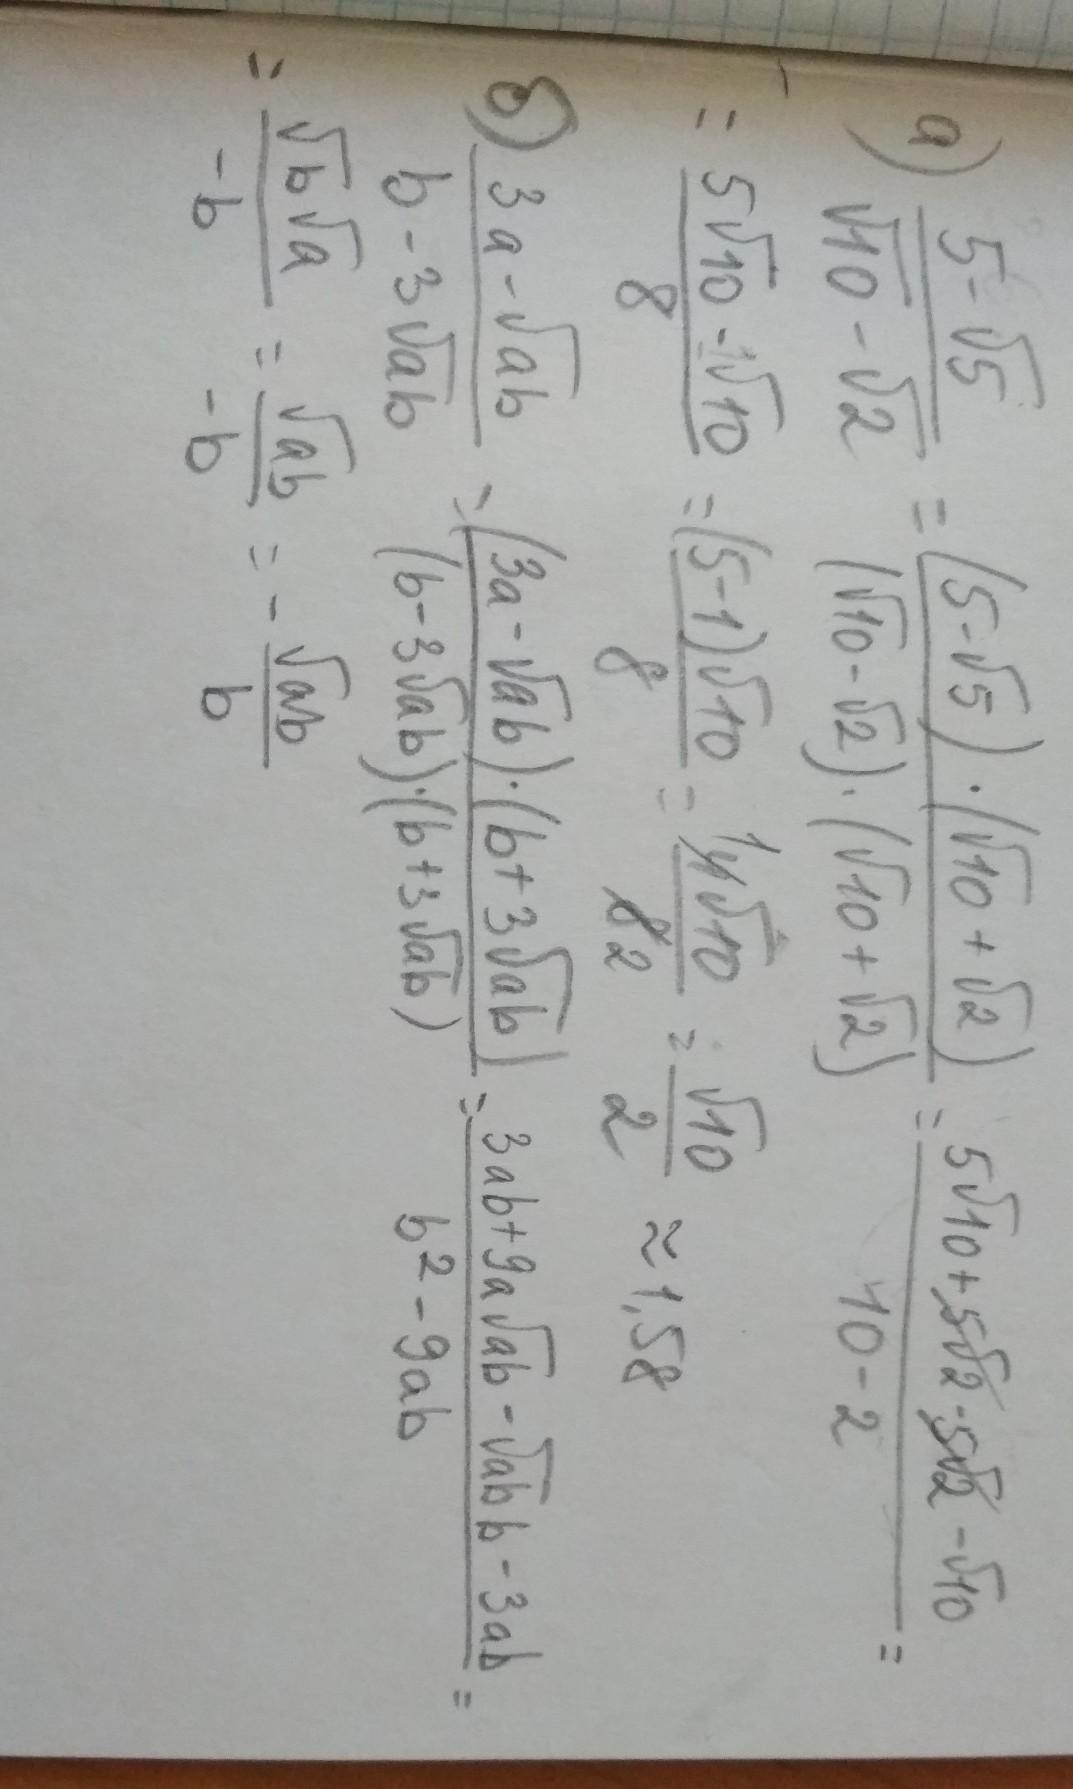 а) (5-√5)/(√10-√2) = ((5-√5)·(√10+√2))/((√10-√2)·(√10+√2)) = (5√10+5√2-5√2-√10)/(10-2) =
= (5√10-1√10)/8 = ((5-1)√10)/8 = (4√10)/8 = √10/2 ≈ 1,58
б) (3a-√ab)/(b-3√ab) = ((3a-√ab)·(b+3√ab))/((b-3√ab)·(b+3√ab)) = (3ab+9a√ab-√ab b-3ab)/(b²-9ab) =
= (√b√a)/(-b) = √ab/(-b) = -√ab/b